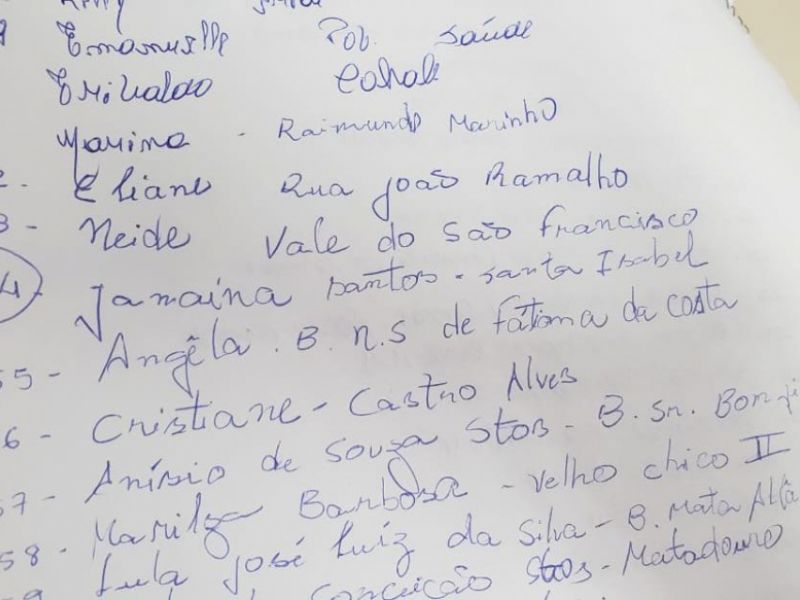 9 Emanuelle Pov. Saúde
Erivaldo Cohab
Marina - Raimundo Marinho
2. Eliane Rua João Ramalho
3 - Neide Vale do São Francisco
4 - Janaina Santos - Santa Isabel
55 - Angêla. B. N.S de Fátima da Costa
56 - Cristiane - Castro Alves
57 - Anísio de Souza Stos - B. Sr. Bonfi
58 - Marilza Barbosa - Velho Chico II
59 Lula José Luiz da Silva - B. Mata Atlâ
Conceição Stos - Matadouro